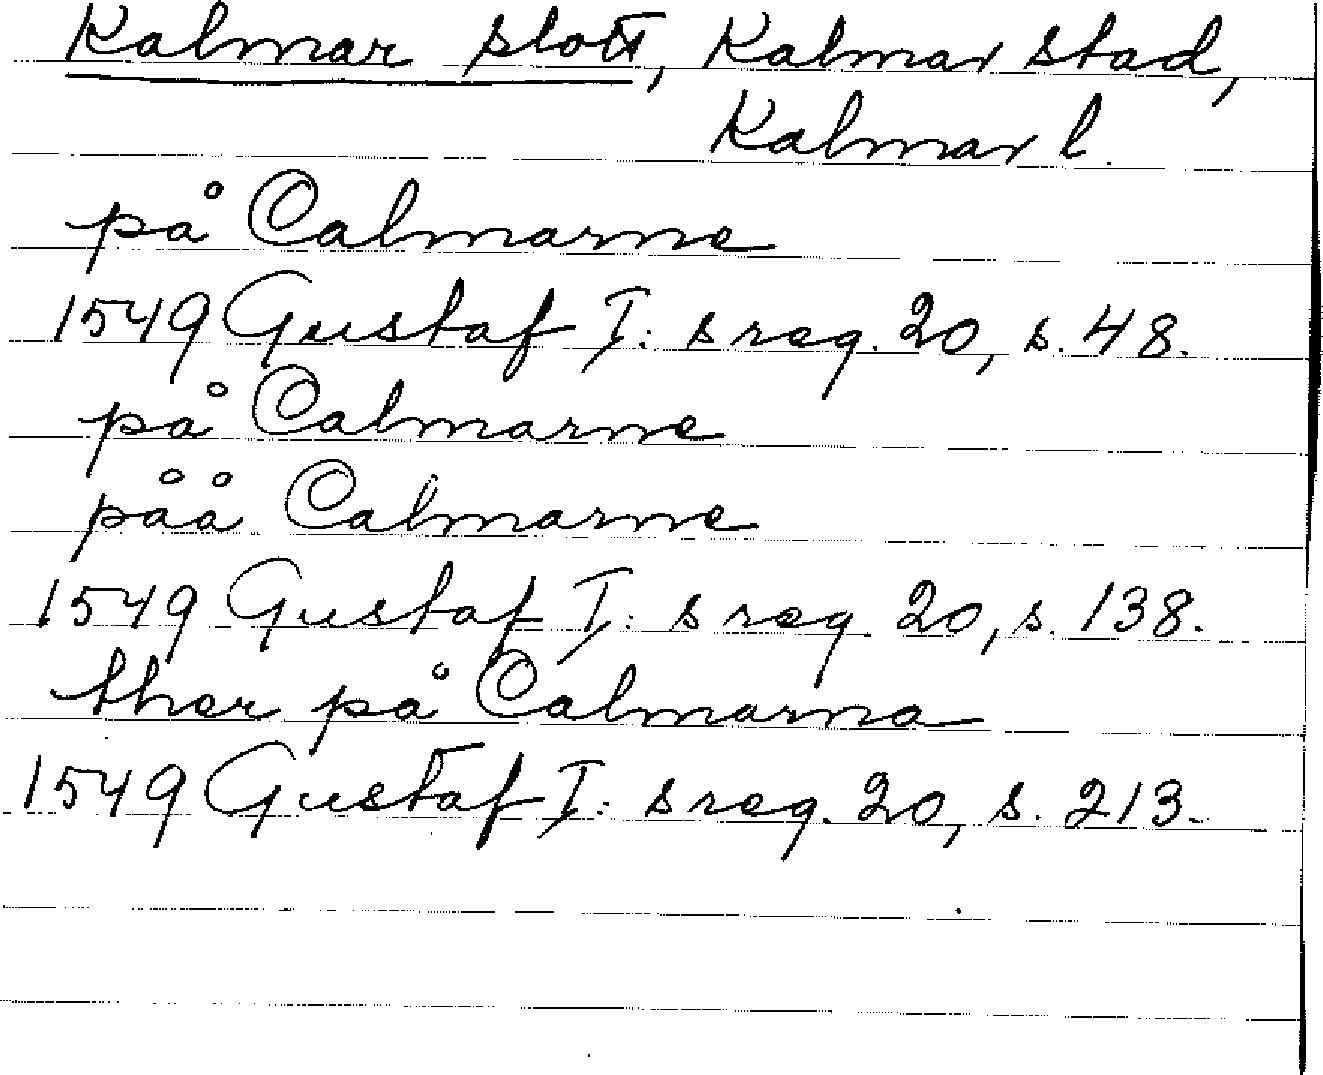 Kalmar slott, Kalmar stad,
Kalmar l.
på Calmarne
1549 Gustaf I: s reg. 20, s. 48.
på Calmarne
påå Calmarne
1549 Gustaf I: s reg. 20, s. 138.
ther på Calmarna
1549 Gustaf I: s reg. 20, s. 213.